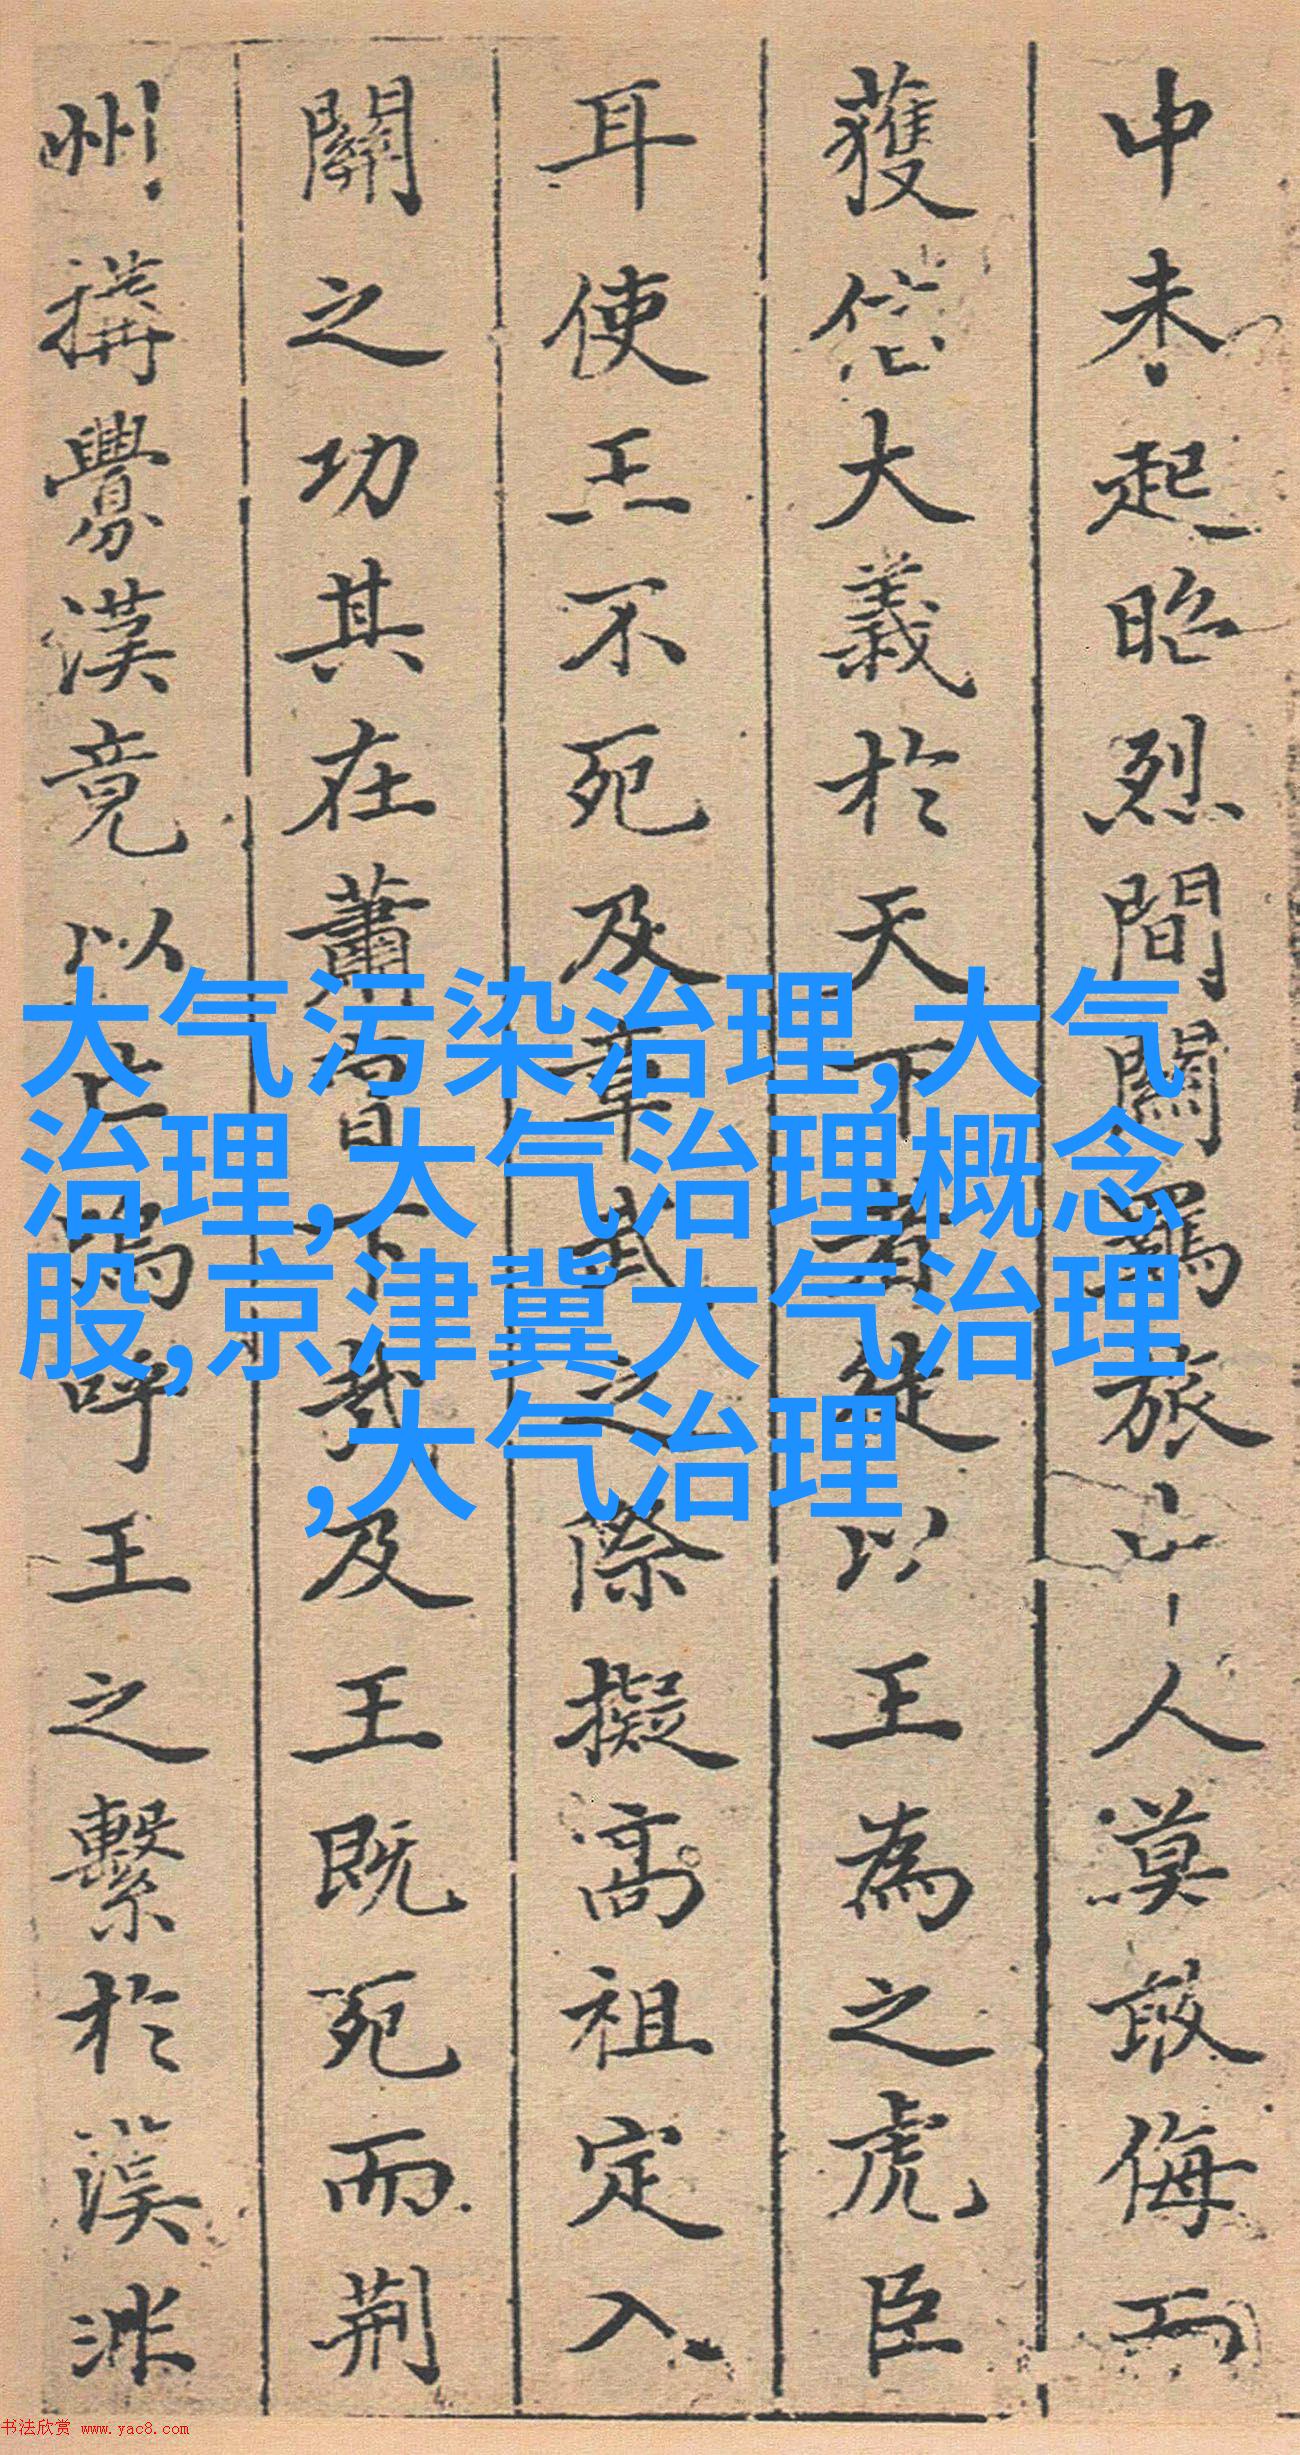 中未起昭烈間關羈旅之中人莫敢侮而
獲信大義於天下者徒以王為之虎臣
耳使王不死及章武之際擬高祖定入
關之功其在蕭曹下哉及王既死而荊
州搆釁漢竟以亡嗚呼王之繫於漢非
大气污染治理,大气
治理,大气治理概念
股,京津冀大气治理
,大气治理
书法欣赏 www.yac8.com